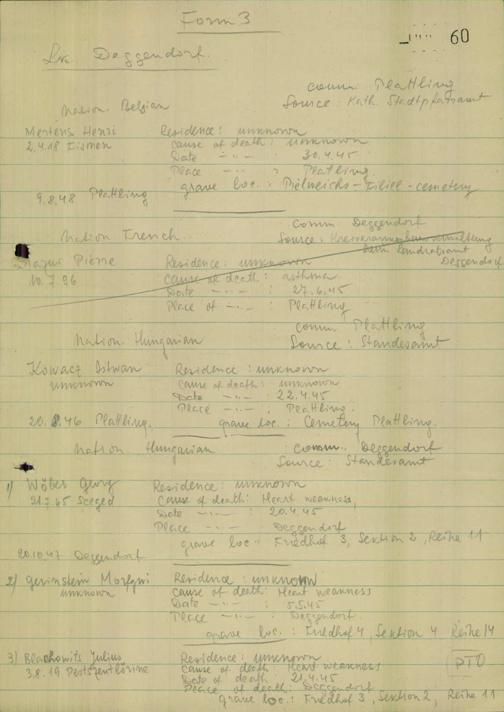 Form 3
60
Lk. Deggendorf.
comm. Plattling
Nation Belgian
Source: Kath. Stadtpfarramt
Mertens Henri
Residence: unknown
2.4.18
cause of death: unknown
Date -"- : 30.4.45
Place -"- : Plattling.
9.8.48 Plattling
grave loc.: Pielweichs-Filial-cemetery
comm Deggendorf
Nation French
Source:
beim Landratsamt
Deggendorf
Pierre
Residence: unknown
10.7.96
cause of death: asthma
Date -"- : 27.6.45
Place of -"- : Plattling
comm. Plattling
Nation Hungarian
Source: Standesamt
Kowacz Istwan
Residence: unknown
unknown
cause of death: unknown
Date -"- : 22.4.45
Place -"- : Plattling.
20.8.46 Plattling.
grave loc.: Cemetery Plattling.
Nation Hungarian
comm. Deggendorf
Source: Standesamt
1) Georg
Residence: unknown
Szeged
Cause of death: Heart weakness,
Date -"- 20.4.45
Place -"- Deggendorf
grave loc.: Friedhof 3, Sektion 2, Reihe 11
20.10.47 Deggendorf
2)
Residence: unknown
unknown
cause of death: Heart weakness
Date -"- : 5.5.45
Place -"- : Deggendorf.
grave loc.: Friedhof 4, Sektion 4 Reihe 14
3) Julius
Residence: unknown
3.8.19
Cause of death: Heart weakness
PTO
Date of death: 21.4.45
Place of death: Deggendorf
grave loc: Friedhof 3, Sektion 2, Reihe 11